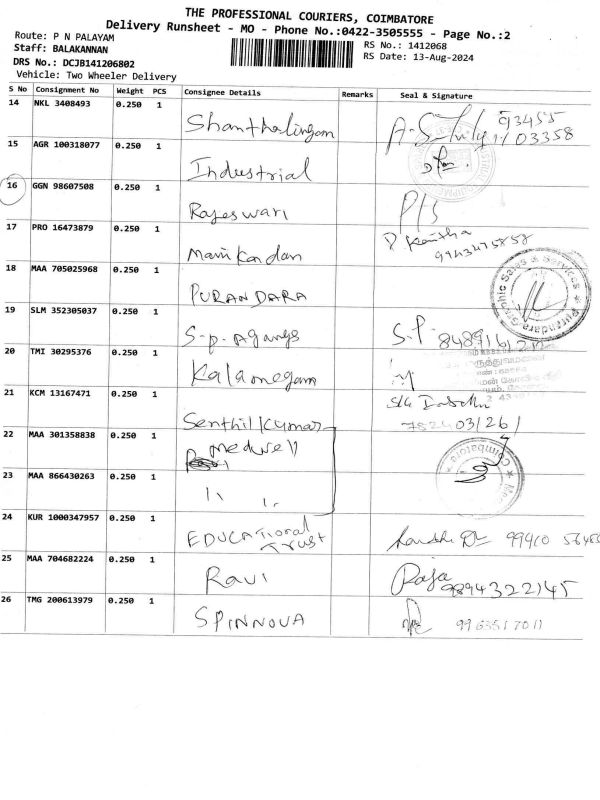 THE PROFESSIONAL COURIERS, COIMBATORE
Delivery Runsheet - MO - Phone No.:0422-3505555 - Page No.:2
Route: P N PALAYAM
Staff: BALAKANNAN
DRS No.: DCJB141206802
Vehicle: Two Wheeler Delivery
RS No.: 1412068
RS Date: 13-Aug-2024
S No Consignment No Weight PCS Consignee Details Remarks Seal & Signature
14 NKL 3408493 0.250 1 Shanthalingam 93455 03358
15 AGR 100318077 0.250 1 Industrial
16 GGN 98607508 0.250 1 Rajeswari P/S
17 PRO 16473879 0.250 1 Manikandan 9943475858
18 MAA 705025968 0.250 1 PURANDARA Purandara Graphic Sales & Services
19 SLM 352305037 0.250 1 S-P- S.P
20 TMI 30295376 0.250 1 Kalamegam
21 KCM 13167471 0.250 1 Senthil Kumar
22 MAA 301358838 0.250 1 Mediwell Coimbatore
23 MAA 866430263 0.250 1 ıı ıı
24 KUR 1000347957 0.250 1 EDUCATIONAL Trust 99410
25 MAA 704682224 0.250 1 Ravi Raja 9894322145
26 TMG 200613979 0.250 1 SPINNOVA 9963517011